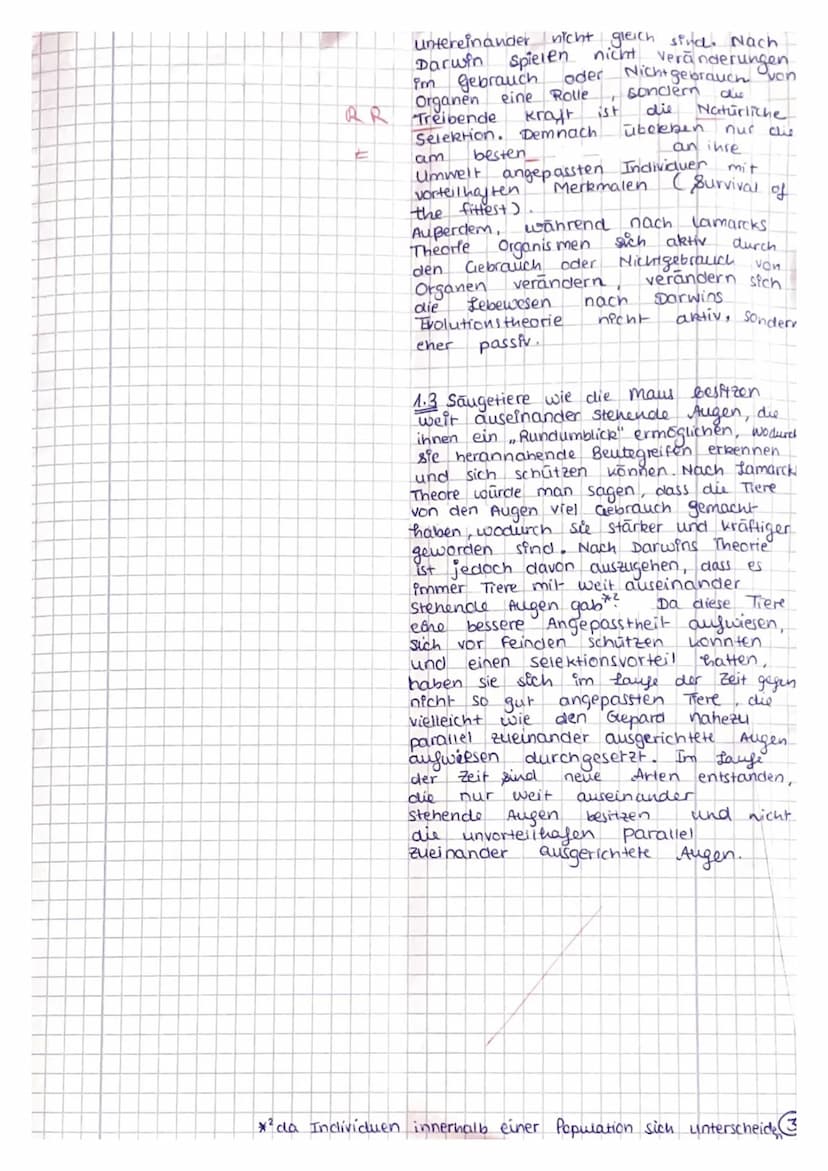 untereinander nicht gleich sind. Nach
Darwin spielen nicht Veränderungen
im Gebrauch oder Nichtgebrauch von
Organen eine Rolle, sondern die
R R Treibende Kraft ist die Natürliche
Selektion. Demnach überleben nur die
am besten an ihre
Umwelt angepassten Individuen mit
vorteilhaften Merkmalen (Survival of
the fittest).
Außerdem, während nach Lamarcks
Theorie Organismen sich aktiv durch
den Gebrauch oder Nichtgebrauch von
Organen verändern, verändern sich
die Lebewesen nach Darwins
Evolutionstheorie nicht aktiv, sondern
eher passiv.
1.3 Säugetiere wie die Maus besitzen
weit auseinander stehende Augen, die
ihnen ein „Rundumblick" ermöglichen, wodurch
sie herannahende Beutegreifen erkennen
und sich schützen können. Nach Lamarck
Theore würde man sagen, dass die Tiere
von den Augen viel Gebrauch gemacht
haben, wodurch sie stärker und kräftiger
geworden sind. Nach Darwins Theorie
ist jedoch davon auszugehen, dass es
immer Tiere mit weit auseinander
stehende Augen gab*². Da diese Tiere
eine bessere Angepasstheit aufwiesen,
sich vor Feinden schützen konnten
und einen Selektionsvorteil hatten,
haben sie sich im Laufe der Zeit gegen
nicht so gut angepassten Tiere, die
vielleicht wie den Gepard nahezu
parallel zueinander ausgerichtete Augen
aufwiesen durchgesetzt. Im Laufe
der Zeit sind neue Arten entstanden,
die nur weit auseinander
stehende Augen besitzen und nicht
die unvorteilhafen parallel
zueinander ausgerichtete Augen.
*² da Individuen innerhalb einer Population sich unterscheiden 3